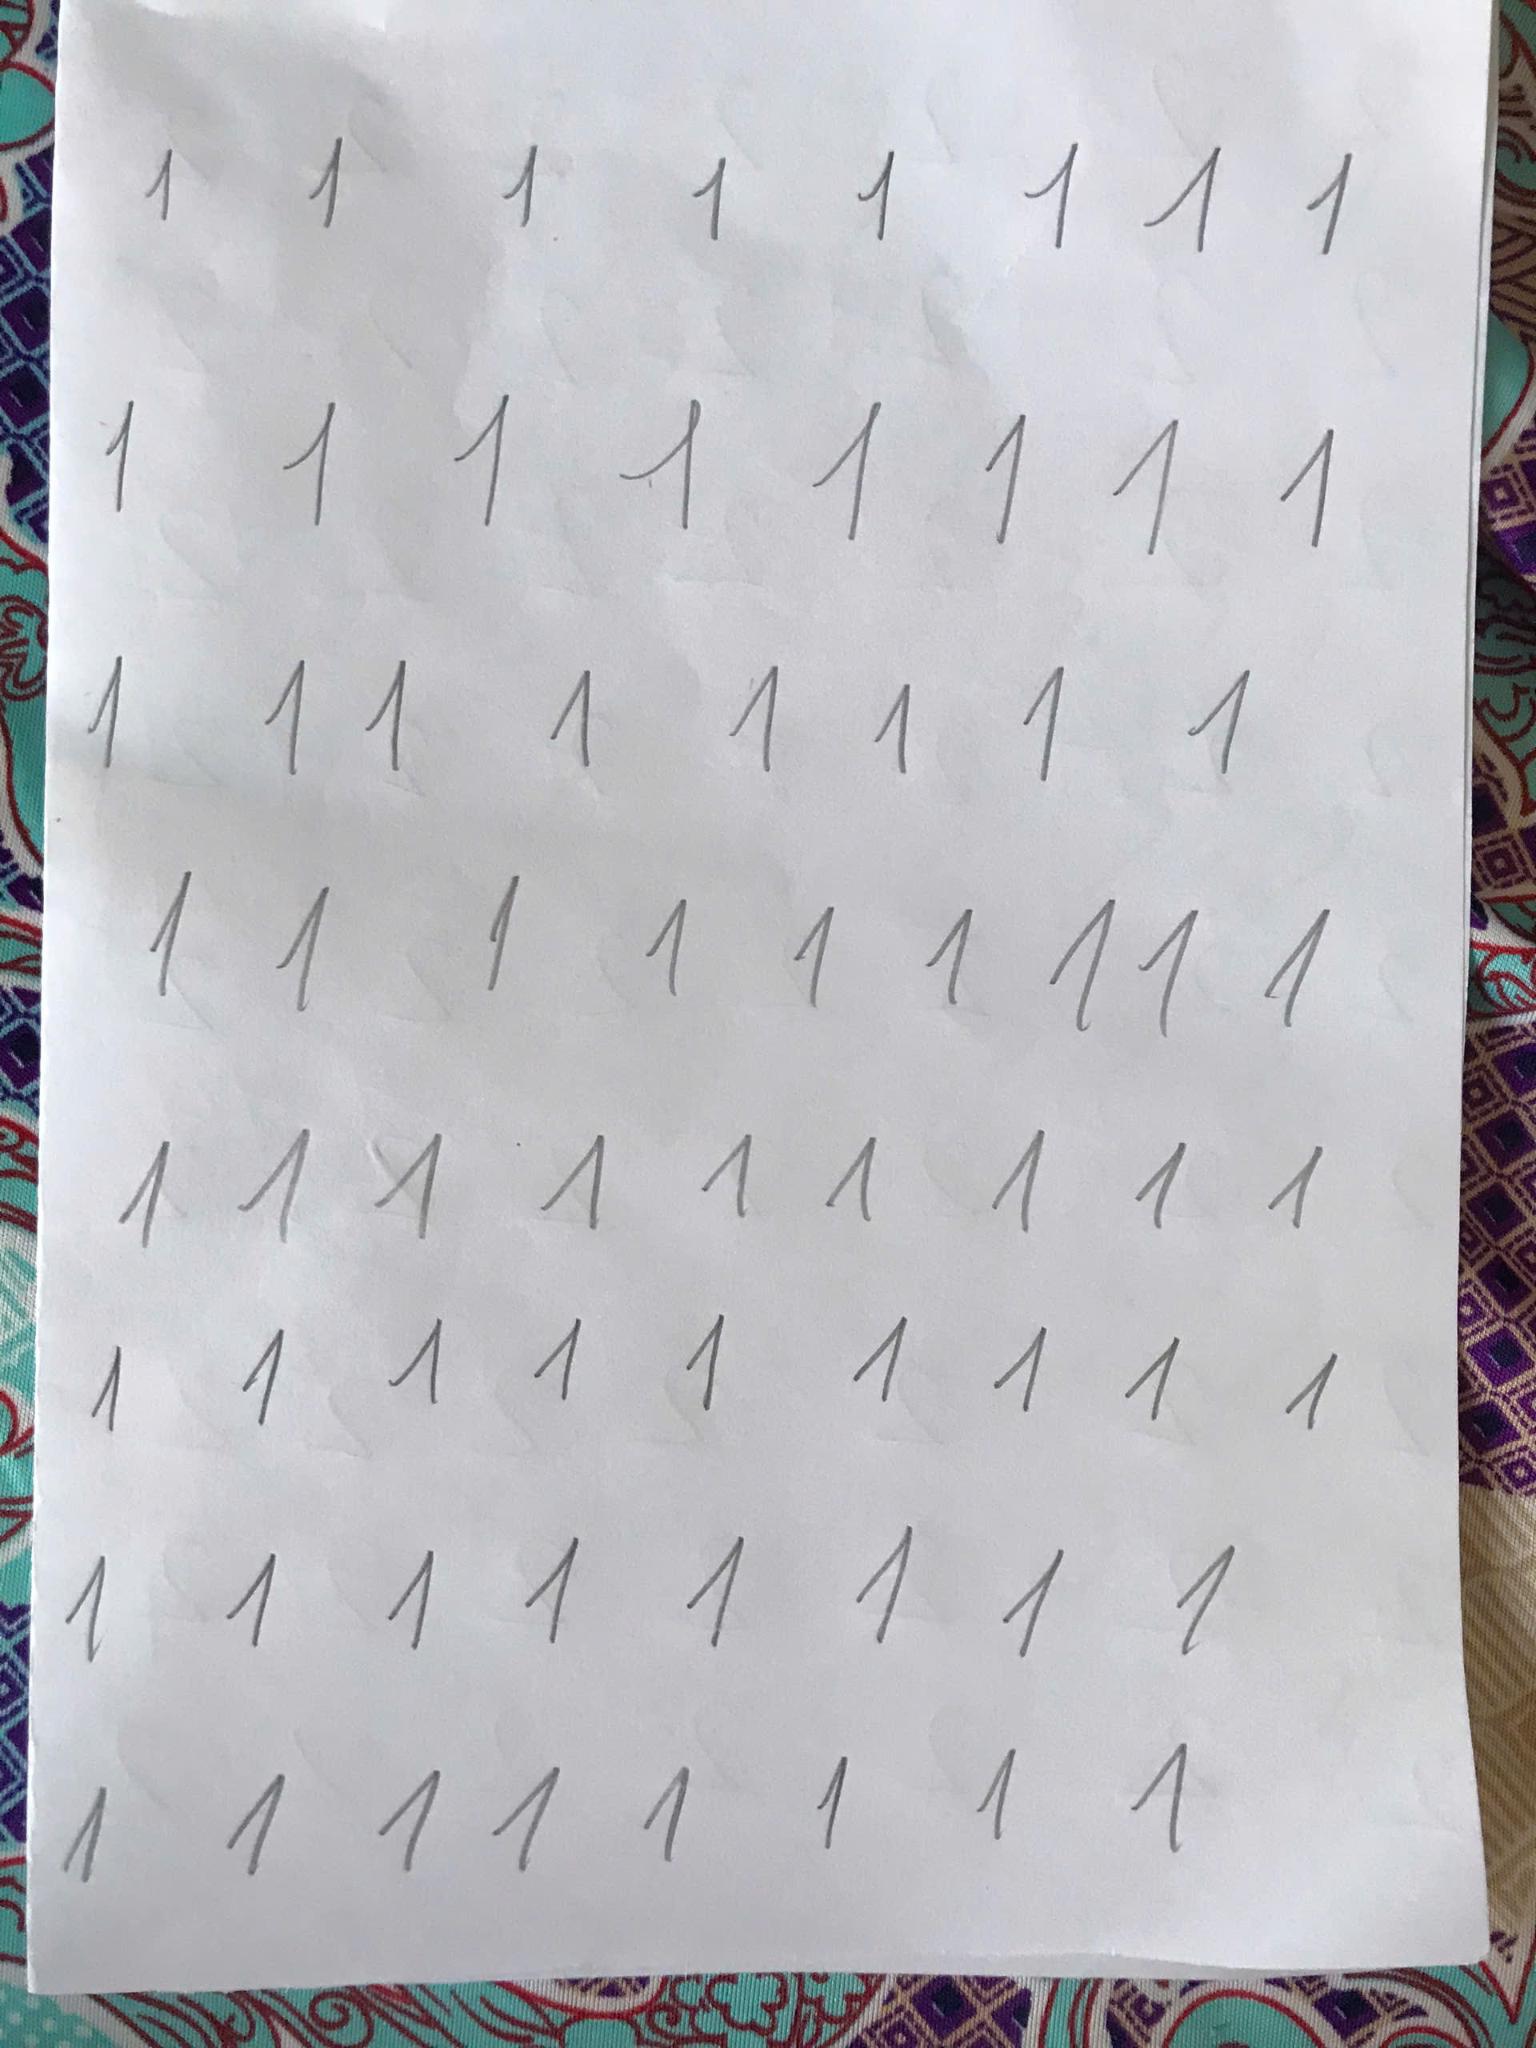 1 1 1 1 1 1 1 1
1 1 1 1 1 1 1 1
1 1 1 1 1 1 1 1
1 1 1 1 1 1 1 1 1
1 1 1 1 1 1 1 1 1
1 1 1 1 1 1 1 1 1
1 1 1 1 1 1 1 1
1 1 1 1 1 1 1 1